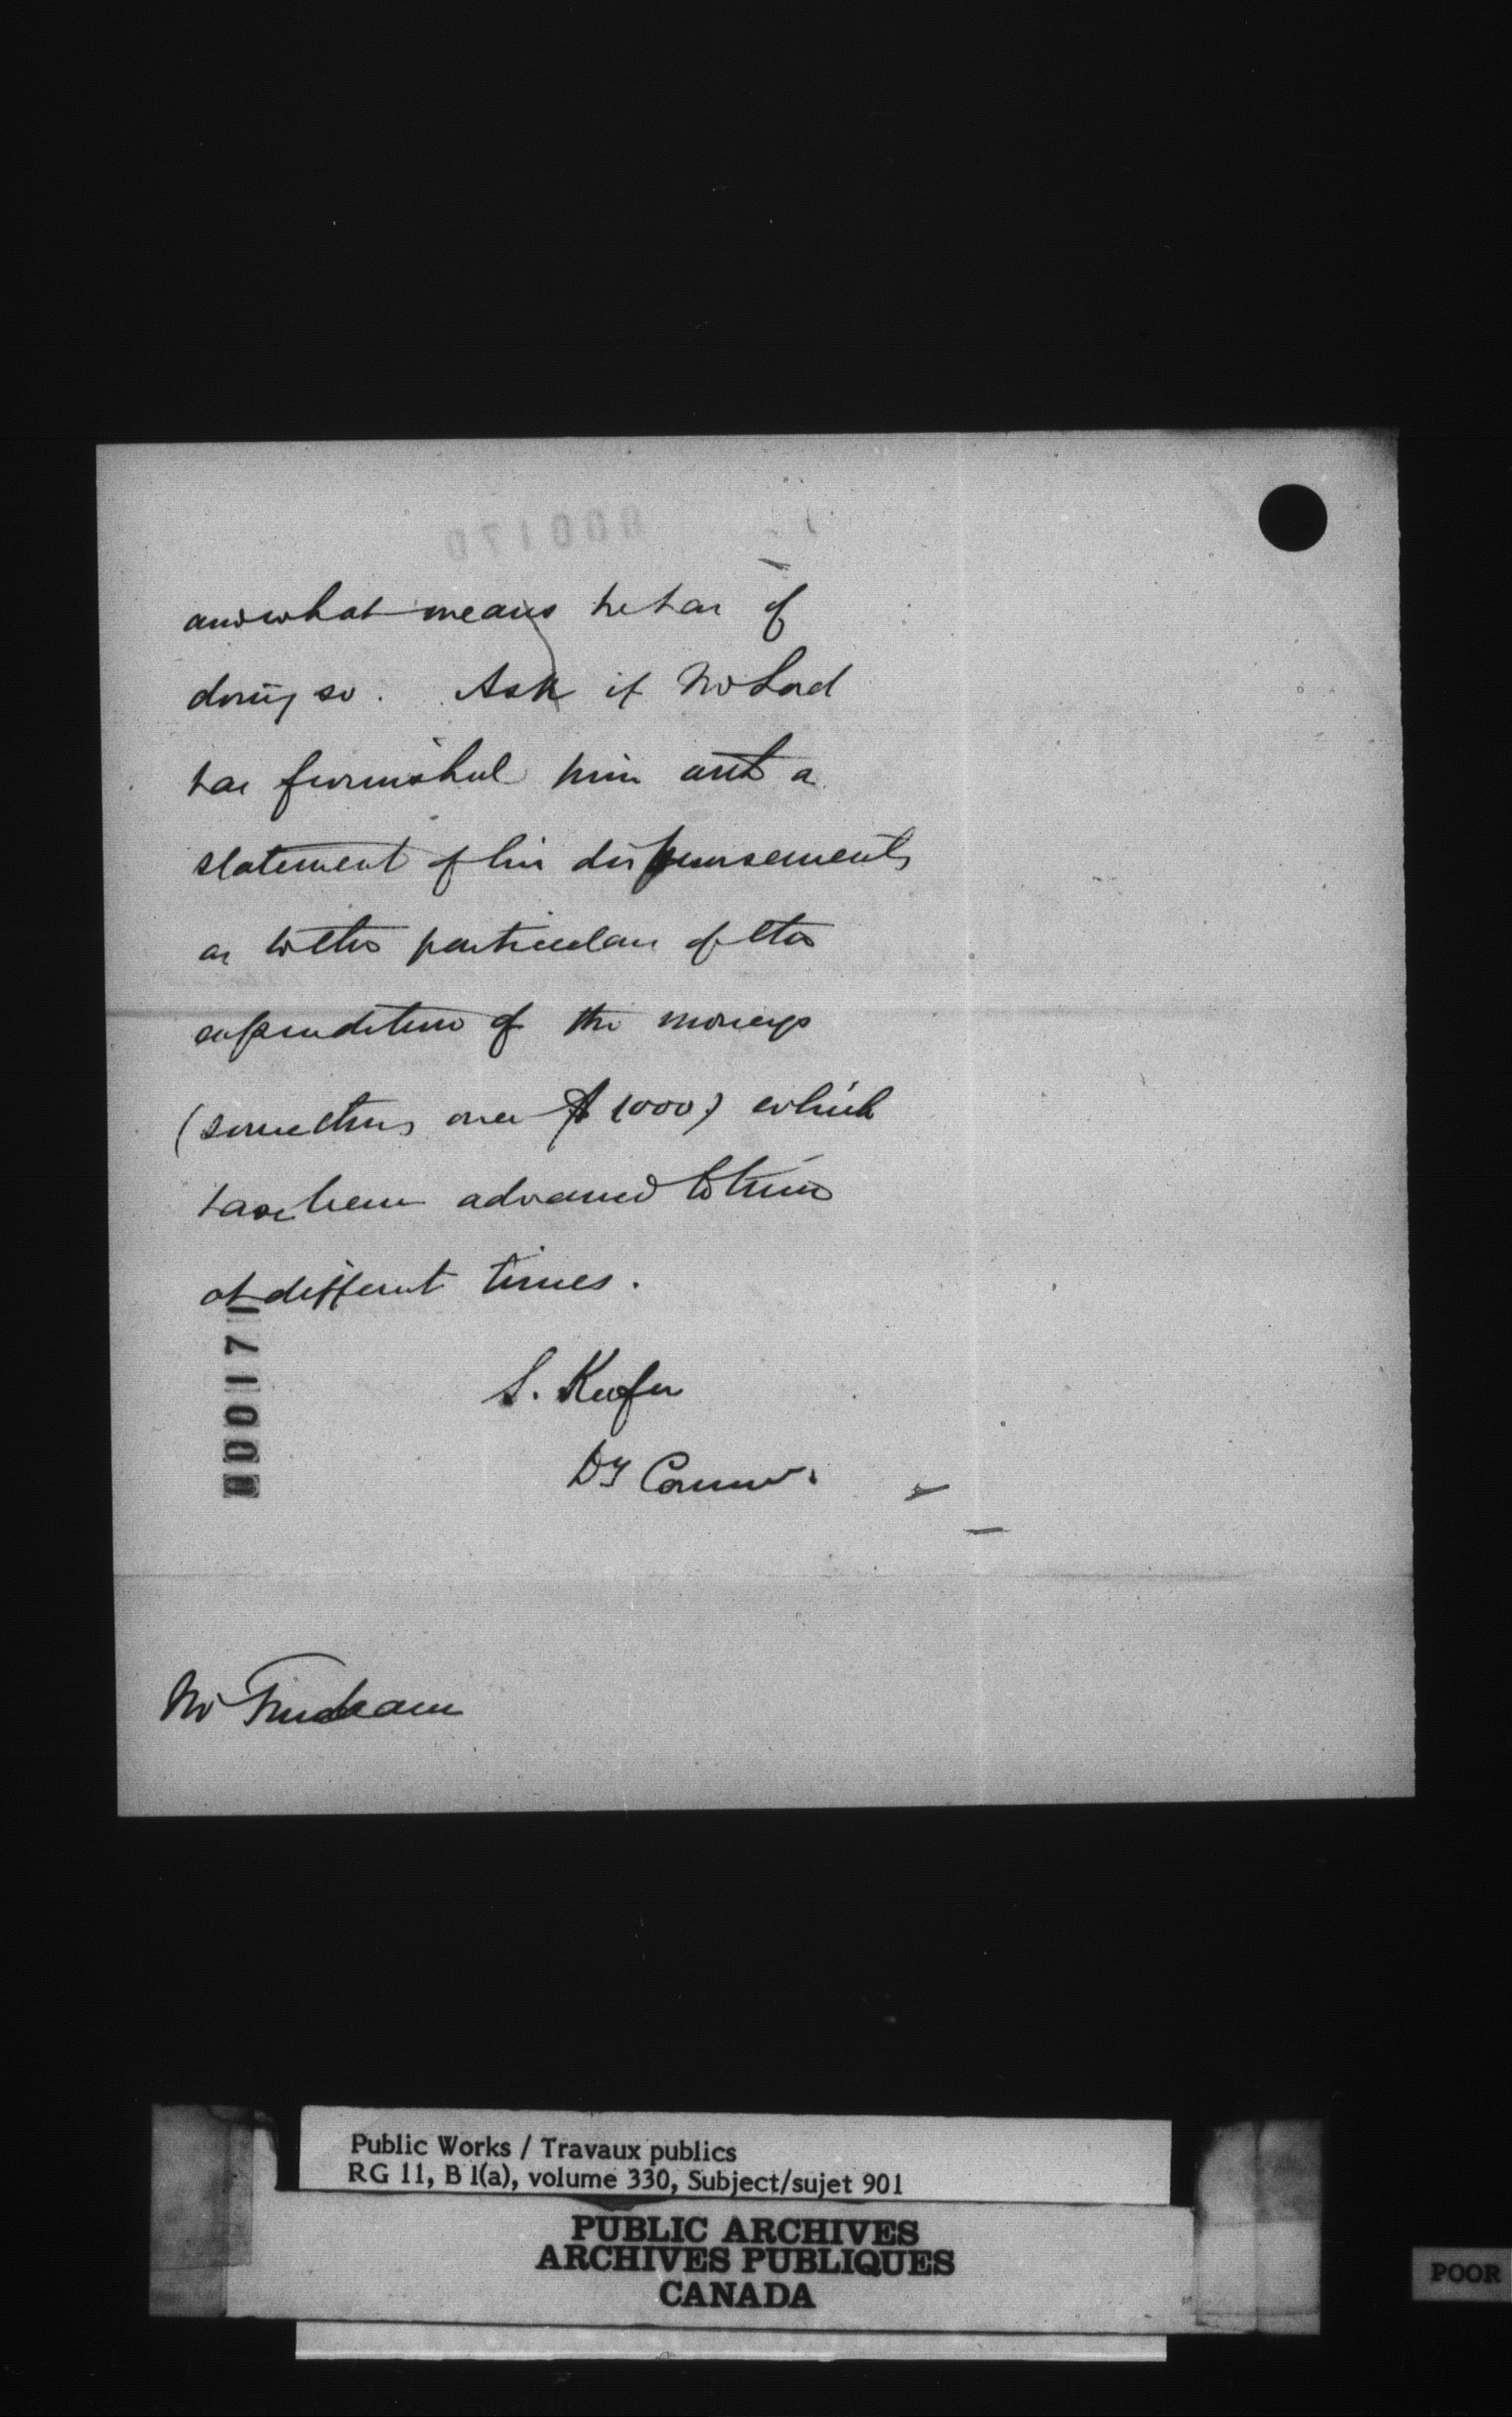 and what means he has of
doing so. Ask if Mr Lord
has furnished him with a
statement of his disbursements
or with particulars of the
expenditure of the moneys
(something over $1000) which
have been advanced to him
at different times.
S. Keefer
Dy Commr.
000171
Mr Trudeau
Public Works / Travaux publics
RG 11, B 1(a), volume 330, Subject/sujet 901
PUBLIC ARCHIVES
ARCHIVES PUBLIQUES
CANADA
POOR